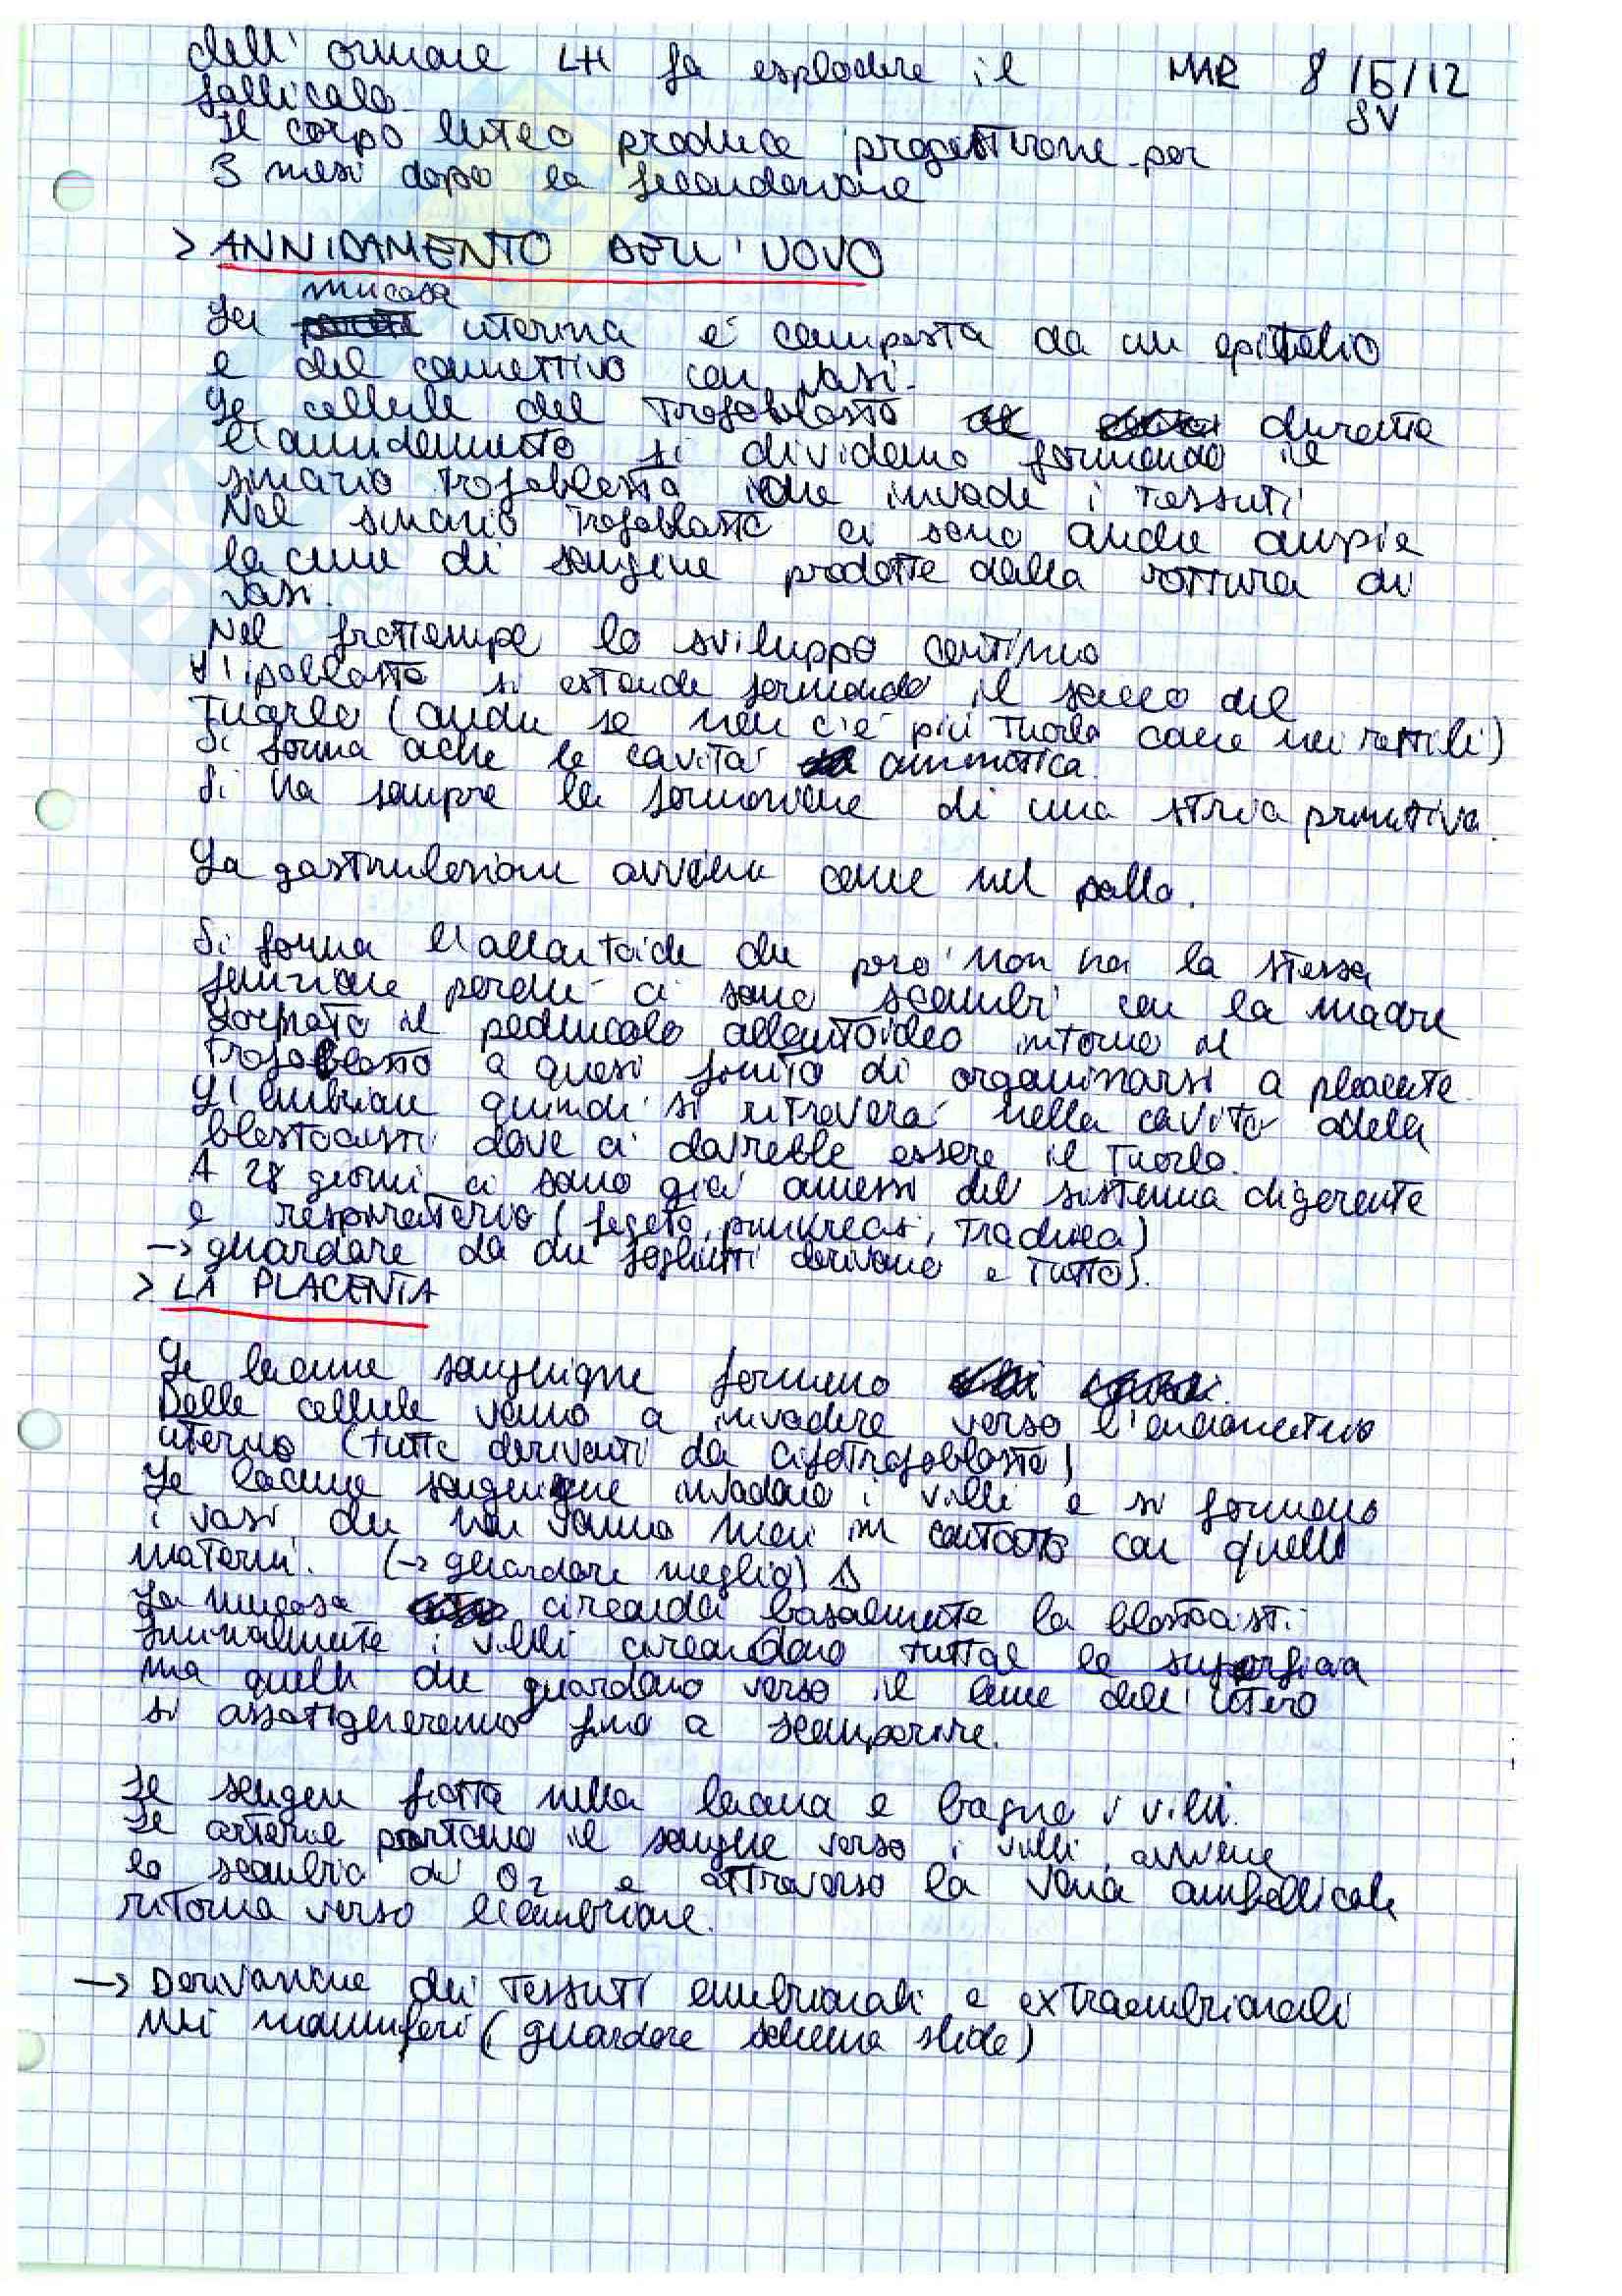 dell'ormone LH fa esplodere il MAR 8/5/12
follicolo. SV
Il corpo luteo produce progestirone per
3 mesi dopo la fecondazione
> ANNIDAMENTO DELL'UOVO
mucosa
La uterina è composta da un epitelio
e del connettivo con vasi.
Le cellule del trofoblasto durante
l'annidamento si dividono formando il
sincizio trofoblasto che invade i tessuti
Nel sincizio trofoblasto ci sono anche ampie
lacune di sangue prodotte dalla rottura di
vasi.
Nel frattempo lo sviluppo continua
L'ipoblasto si estende formando il sacco del
tuorlo (anche se non c'è più tuorlo come nei rettili)
Si forma ache la cavità amniotica.
Si ha sempre la formazione di una stria primitiva.
La gastrulazione avviene come nel pollo.
Si forma l'allantoide che però non ha la stessa
funzione perchè ci sono scambi con la madre
Formato il peduncolo allantoideo intorno il
trofoblasto a quasi finito di organizzarsi a placenta.
L'embrione quindi si ritroverà nella cavità della
blastocisti dove ci dovrebbe essere il tuorlo.
A 28 giorni ci sono già annessi del sistema digerente
e respiratorio (fegato, puncreas, trachea)
→ guardare da che foglietti derivano e tutto).
> LA PLACENTA
Le lacune sanguigne formano
Delle cellule vanno a invadere verso l'endometrio
uterino (tutte derivanti da citotrofoblasto)
Le lacune sanguigne invadono i villi e si formano
i vasi che non vanno mai in contatto con quelli
materni. (→ guardare meglio)
La mucosa circonda basalmente la blastocisti.
Inizialmente i villi circondano tutta la superficia
ma quelli che guardano verso il lume dell'utero
si assotiglieranno fino a scomparire.
Il sangue fiotta nella lacuna e bagna i villi.
Le arterie portano il sangue verso i villi, avviene
lo scambio di O2 e attraverso la vena ombellicale
ritorna verso l'embrione.
→ Derivazione dei tessuti embrionali e extraembrionali
nei mammiferi (guardare schema slide)